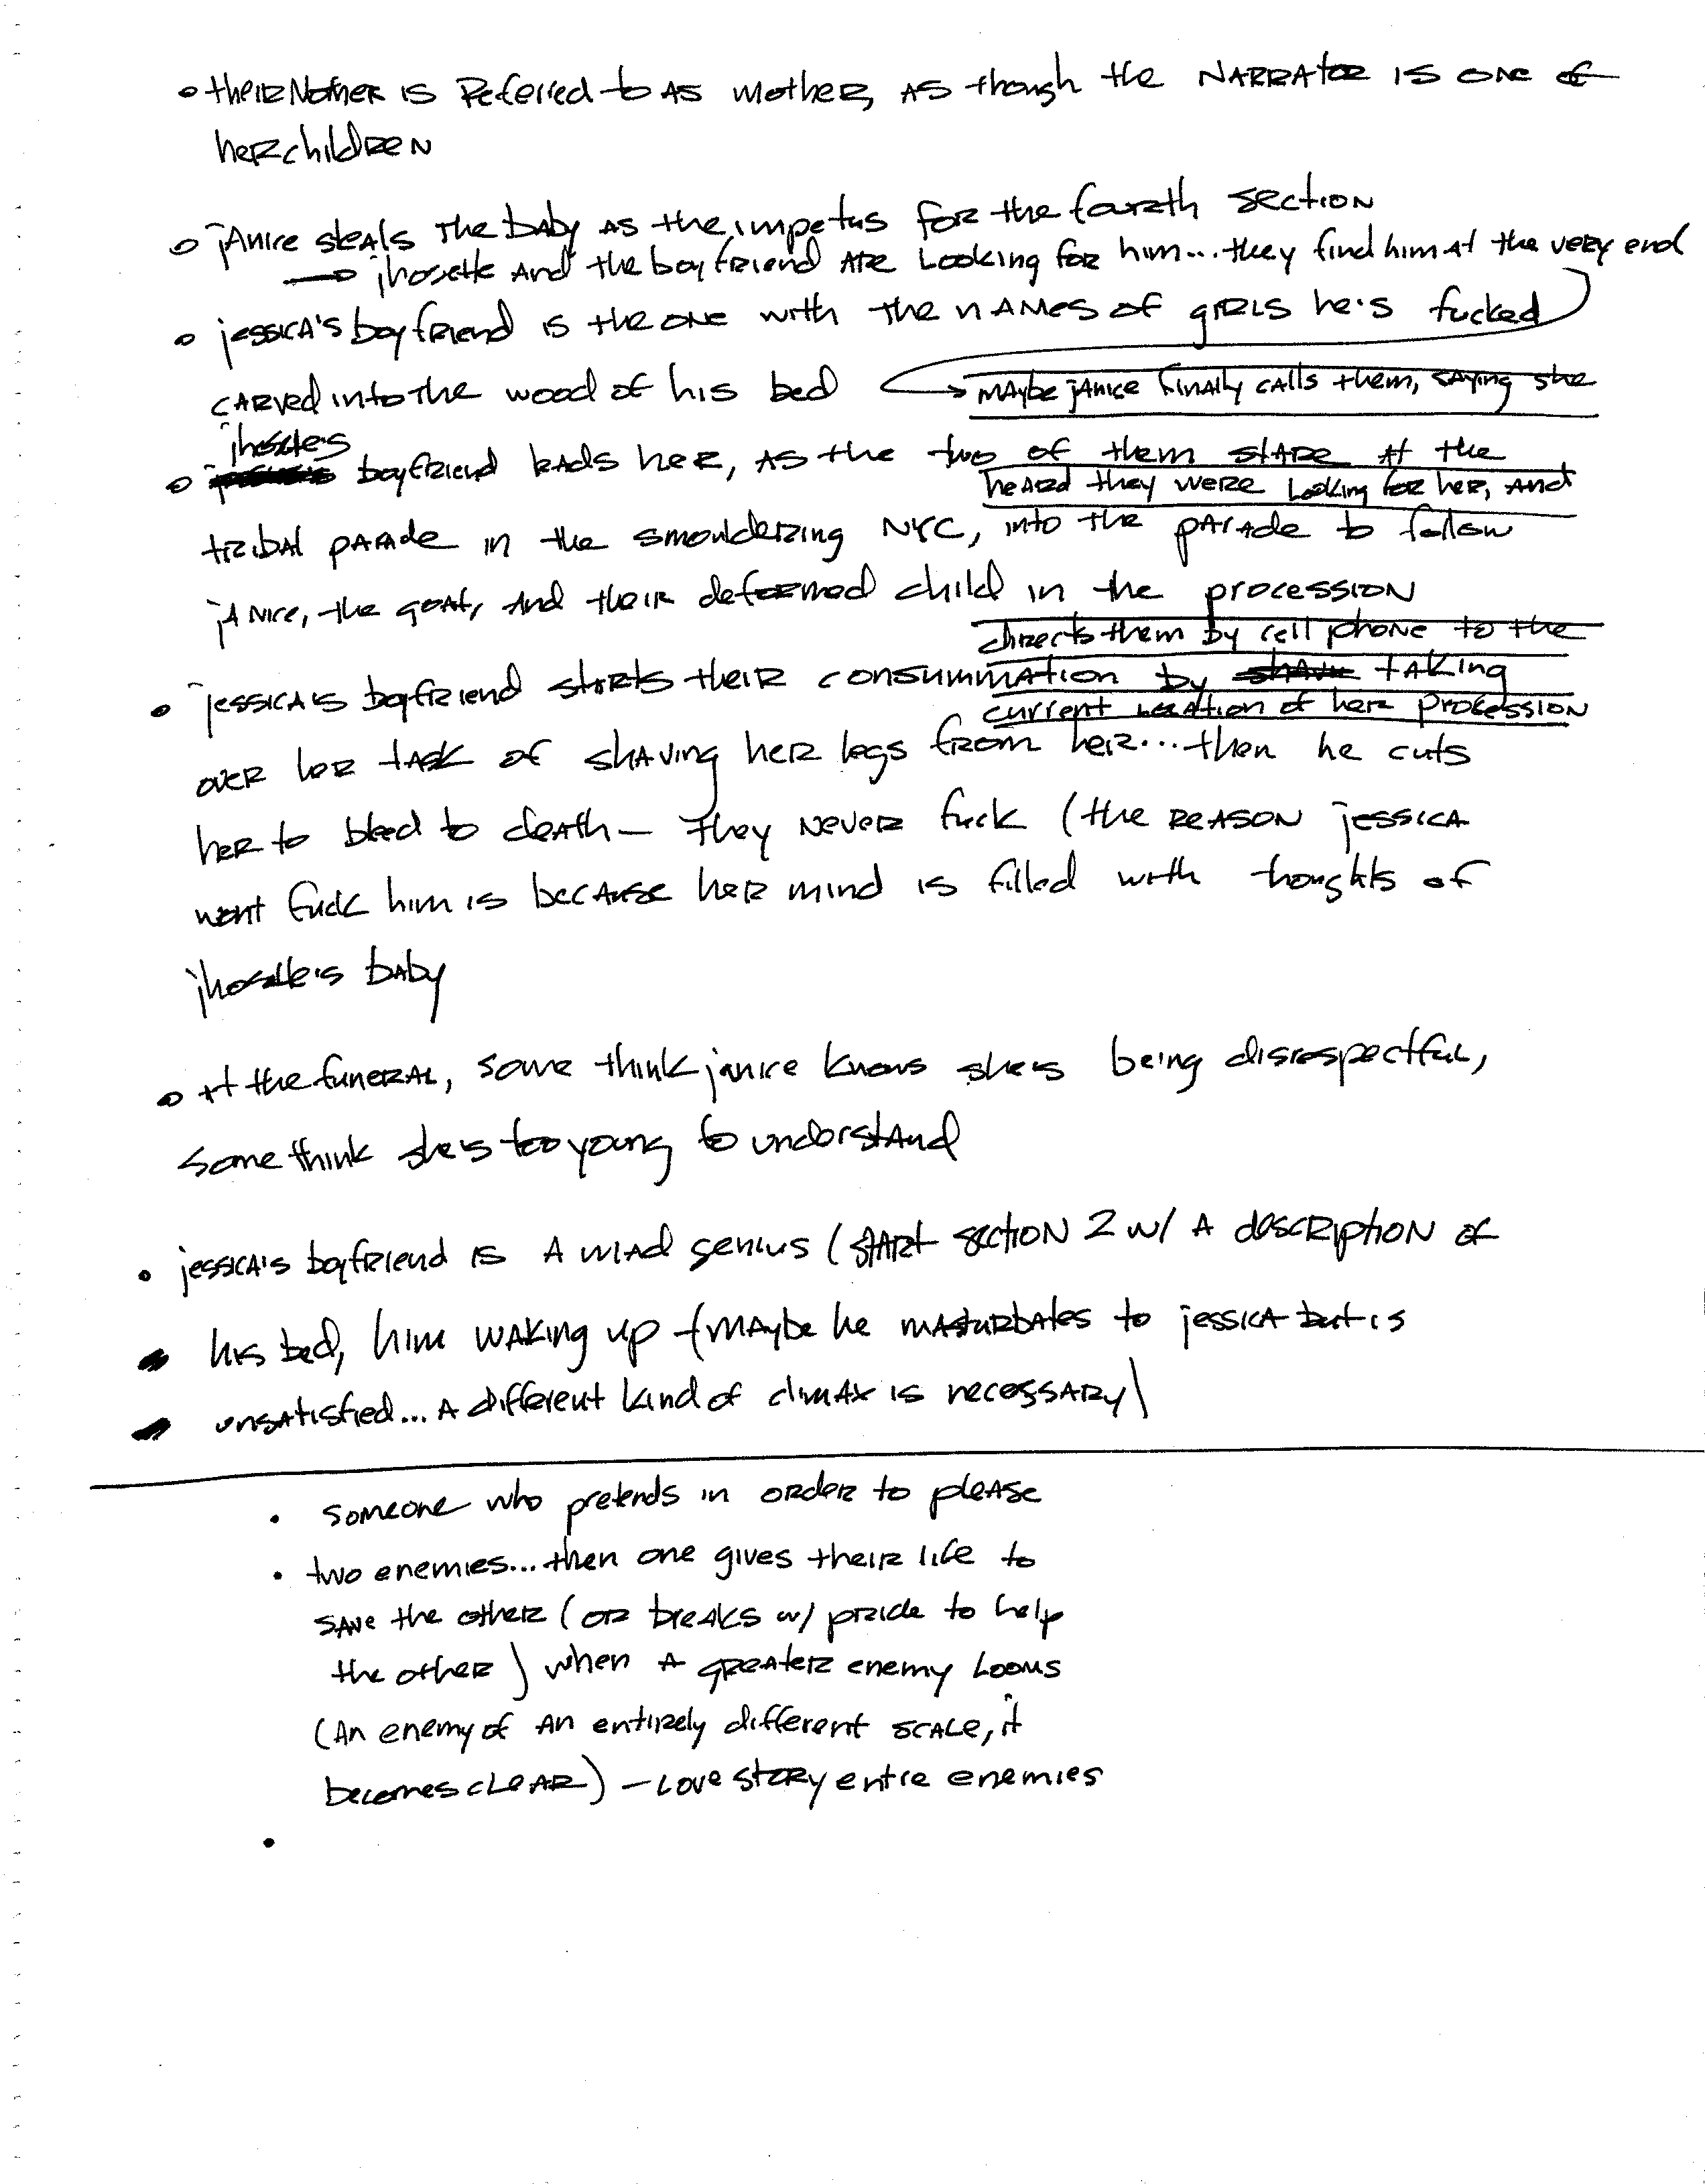 • their Mother is Referred to as mother, as though the NARRATOR is one of
her children
• janice steals the baby as the impetus for the fourth section
→ jhosette and the boyfriend are looking for him... they find him at the very end
• jessica's boyfriend is the one with the names of girls he's fucked
carved into the wood of his bed
→ maybe janice finally calls them, saying she
jhosette's
• boyfriend leads her, as the two of them stare at the
heard they were looking for her, and
tribal parade in the smouldering NYC, into the parade to follow
janice, the goat, and their deformed child in the procession
directs them by cell phone to the
• jessica's boyfriend starts their consummation by taking
current location of her procession
over her task of shaving her legs from her... then he cuts
her to bleed to death — they never fuck (the reason jessica
wont fuck him is because her mind is filled with thoughts of
jhosette's baby
• at the funeral, some think janice knows she's being disrespectful,
some think she's too young to understand
• jessica's boyfriend is a mad genius (start section 2 w/ a description of
his bed, him waking up (maybe he masturbates to jessica but is
unsatisfied... a different kind of climax is necessary)
• someone who pretends in order to please
• two enemies... then one gives their life to
save the other (or breaks w/ pride to help
the other) when a greater enemy looms
(an enemy of an entirely different scale, it
becomes clear) — love story entre enemies
•